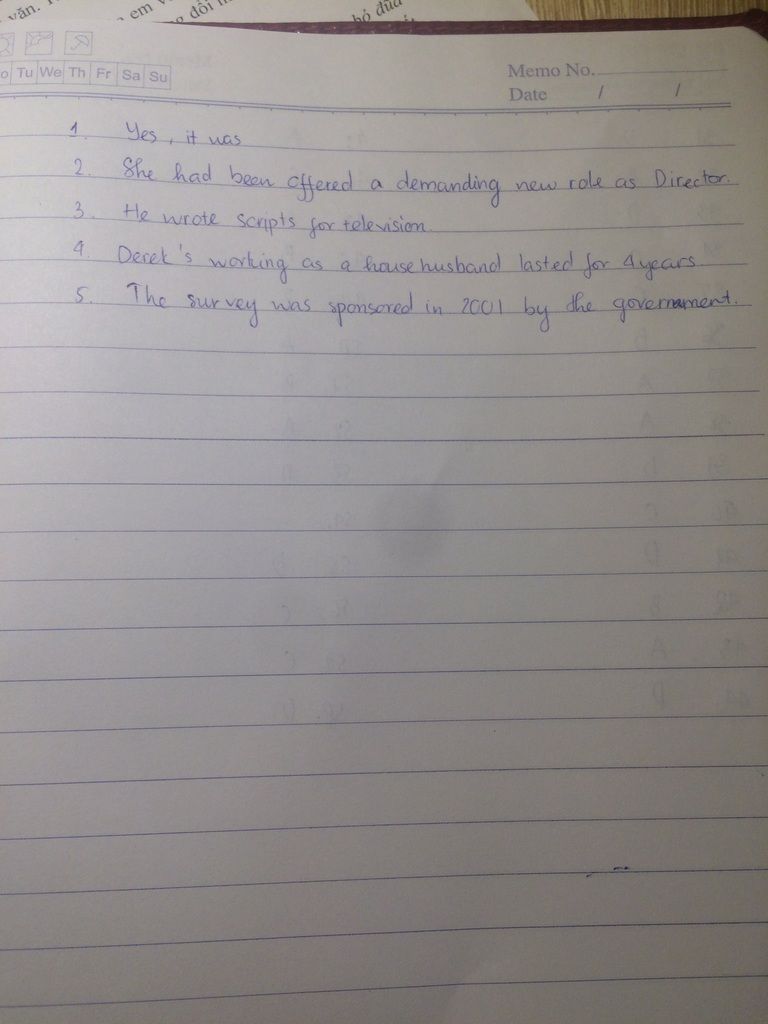 văn.
em
đồi
bỏ đũa
o Tu We Th Fr Sa Su
Memo No.
Date / /
1. Yes, it was
2. She had been offered a demanding new role as Director.
3. He wrote scripts for television
4. Derek's working as a house husband lasted for 4 years
5. The survey was sponsored in 2001 by the government.